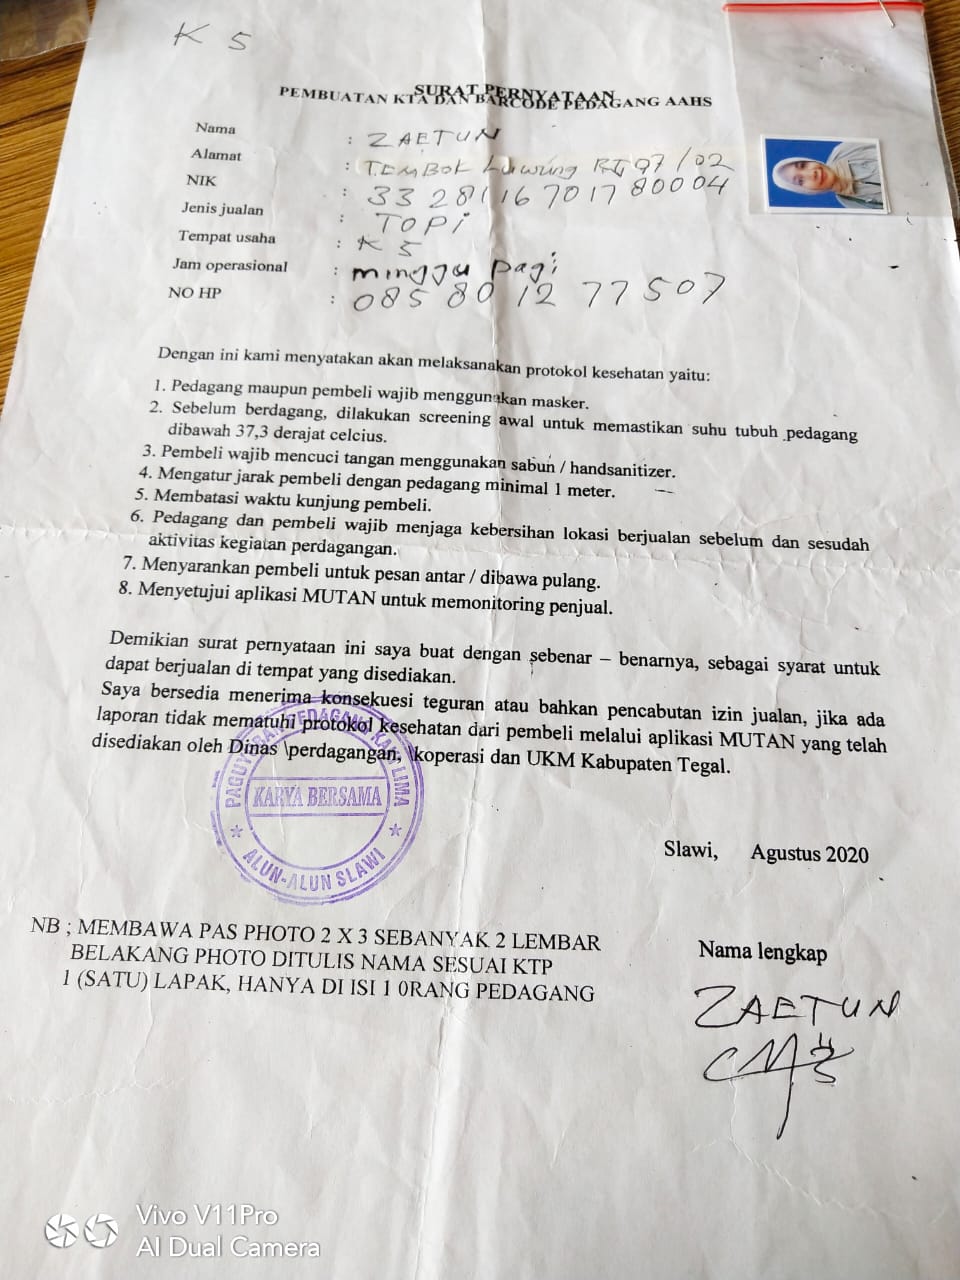 K 5
SURAT PERNYATAAN
PEMBUATAN KTA DAN BARCODE PEDAGANG AAHS
Nama : ZAETUN
Alamat : TEMBOK Luwung RT 07/02
NIK : 33 28116 7017 80004
Jenis jualan : TOPi
Tempat usaha : K 5
Jam operasional : minggu pagi
NO HP : 085 80 12 77507
Dengan ini kami menyatakan akan melaksanakan protokol kesehatan yaitu:
1. Pedagang maupun pembeli wajib menggunakan masker.
2. Sebelum berdagang, dilakukan screening awal untuk memastikan suhu tubuh pedagang
dibawah 37,3 derajat celcius.
3. Pembeli wajib mencuci tangan menggunakan sabun / handsanitizer.
4. Mengatur jarak pembeli dengan pedagang minimal 1 meter.
5. Membatasi waktu kunjung pembeli.
6. Pedagang dan pembeli wajib menjaga kebersihan lokasi berjualan sebelum dan sesudah
aktivitas kegiatan perdagangan.
7. Menyarankan pembeli untuk pesan antar / dibawa pulang.
8. Menyetujui aplikasi MUTAN untuk memonitoring penjual.
Demikian surat pernyataan ini saya buat dengan sebenar – benarnya, sebagai syarat untuk
dapat berjualan di tempat yang disediakan.
Saya bersedia menerima konsekuesi teguran atau bahkan pencabutan izin jualan, jika ada
laporan tidak mematuhi protokol kesehatan dari pembeli melalui aplikasi MUTAN yang telah
disediakan oleh Dinas \perdagangan, \koperasi dan UKM Kabupaten Tegal.
PAGUYUBAN PEDAGANG KAKI LIMA
KARYA BERSAMA
ALUN-ALUN SLAWI
Slawi, Agustus 2020
NB ; MEMBAWA PAS PHOTO 2 X 3 SEBANYAK 2 LEMBAR
BELAKANG PHOTO DITULIS NAMA SESUAI KTP
1 (SATU) LAPAK, HANYA DI ISI 1 0RANG PEDAGANG
Nama lengkap
ZAETUN
Vivo V11Pro
AI Dual Camera